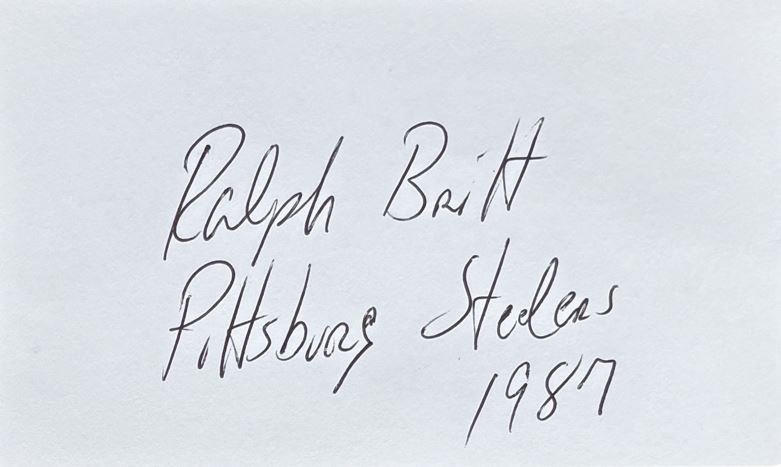 Ralph Britt
Pittsburg Steelers
1987